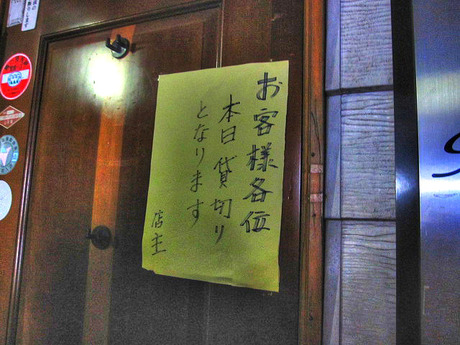 お客様各位
本日貸切り
となります
店主